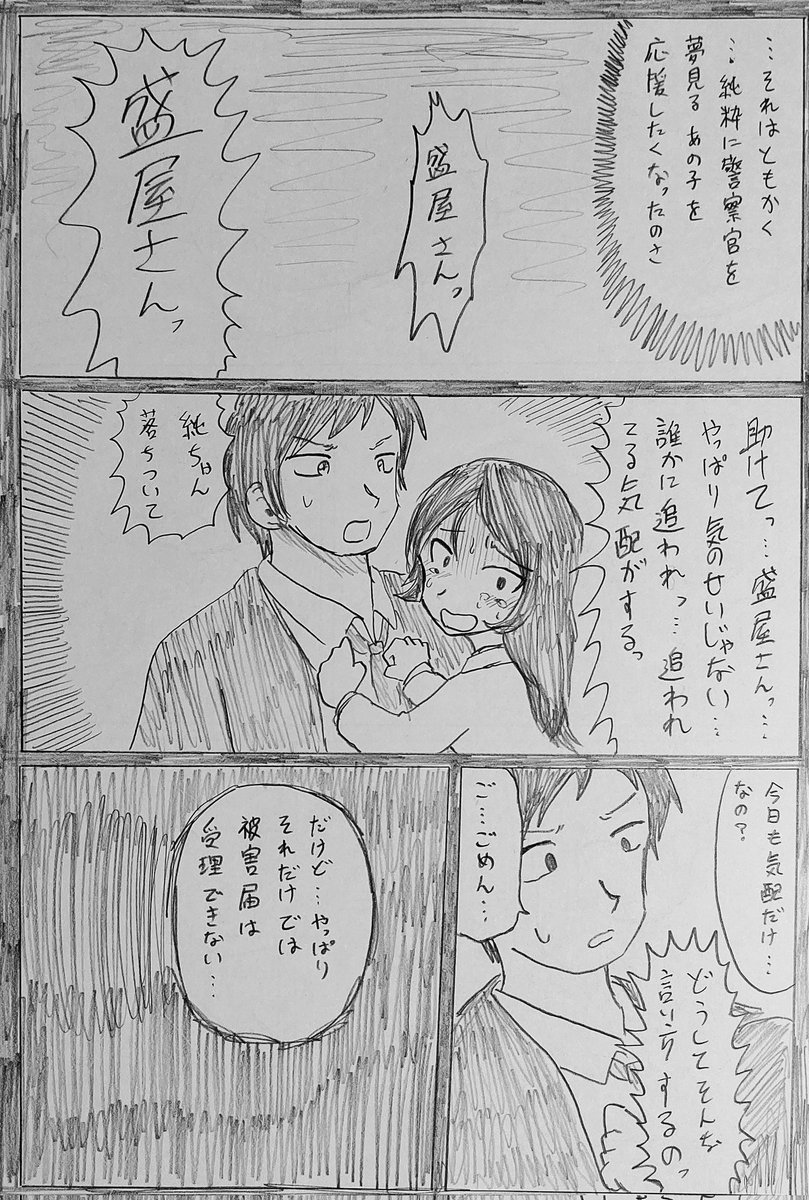 …それはともかく
…純粋に警察官を
夢見るあの子を
応援したくなったのさ
盛屋さんっ
盛屋さんっ
助けてっ…盛屋さんっ…
やっぱり気のせいじゃない…
誰かに追われっ…追われ
てる気配がするっ
純ちゃん
落ちついて
今日も気配だけ…
なの？
どうしてそんな
言い方するのっ
ご…ごめん…
だけど…やっぱり
それだけでは
被害届は
受理できない…